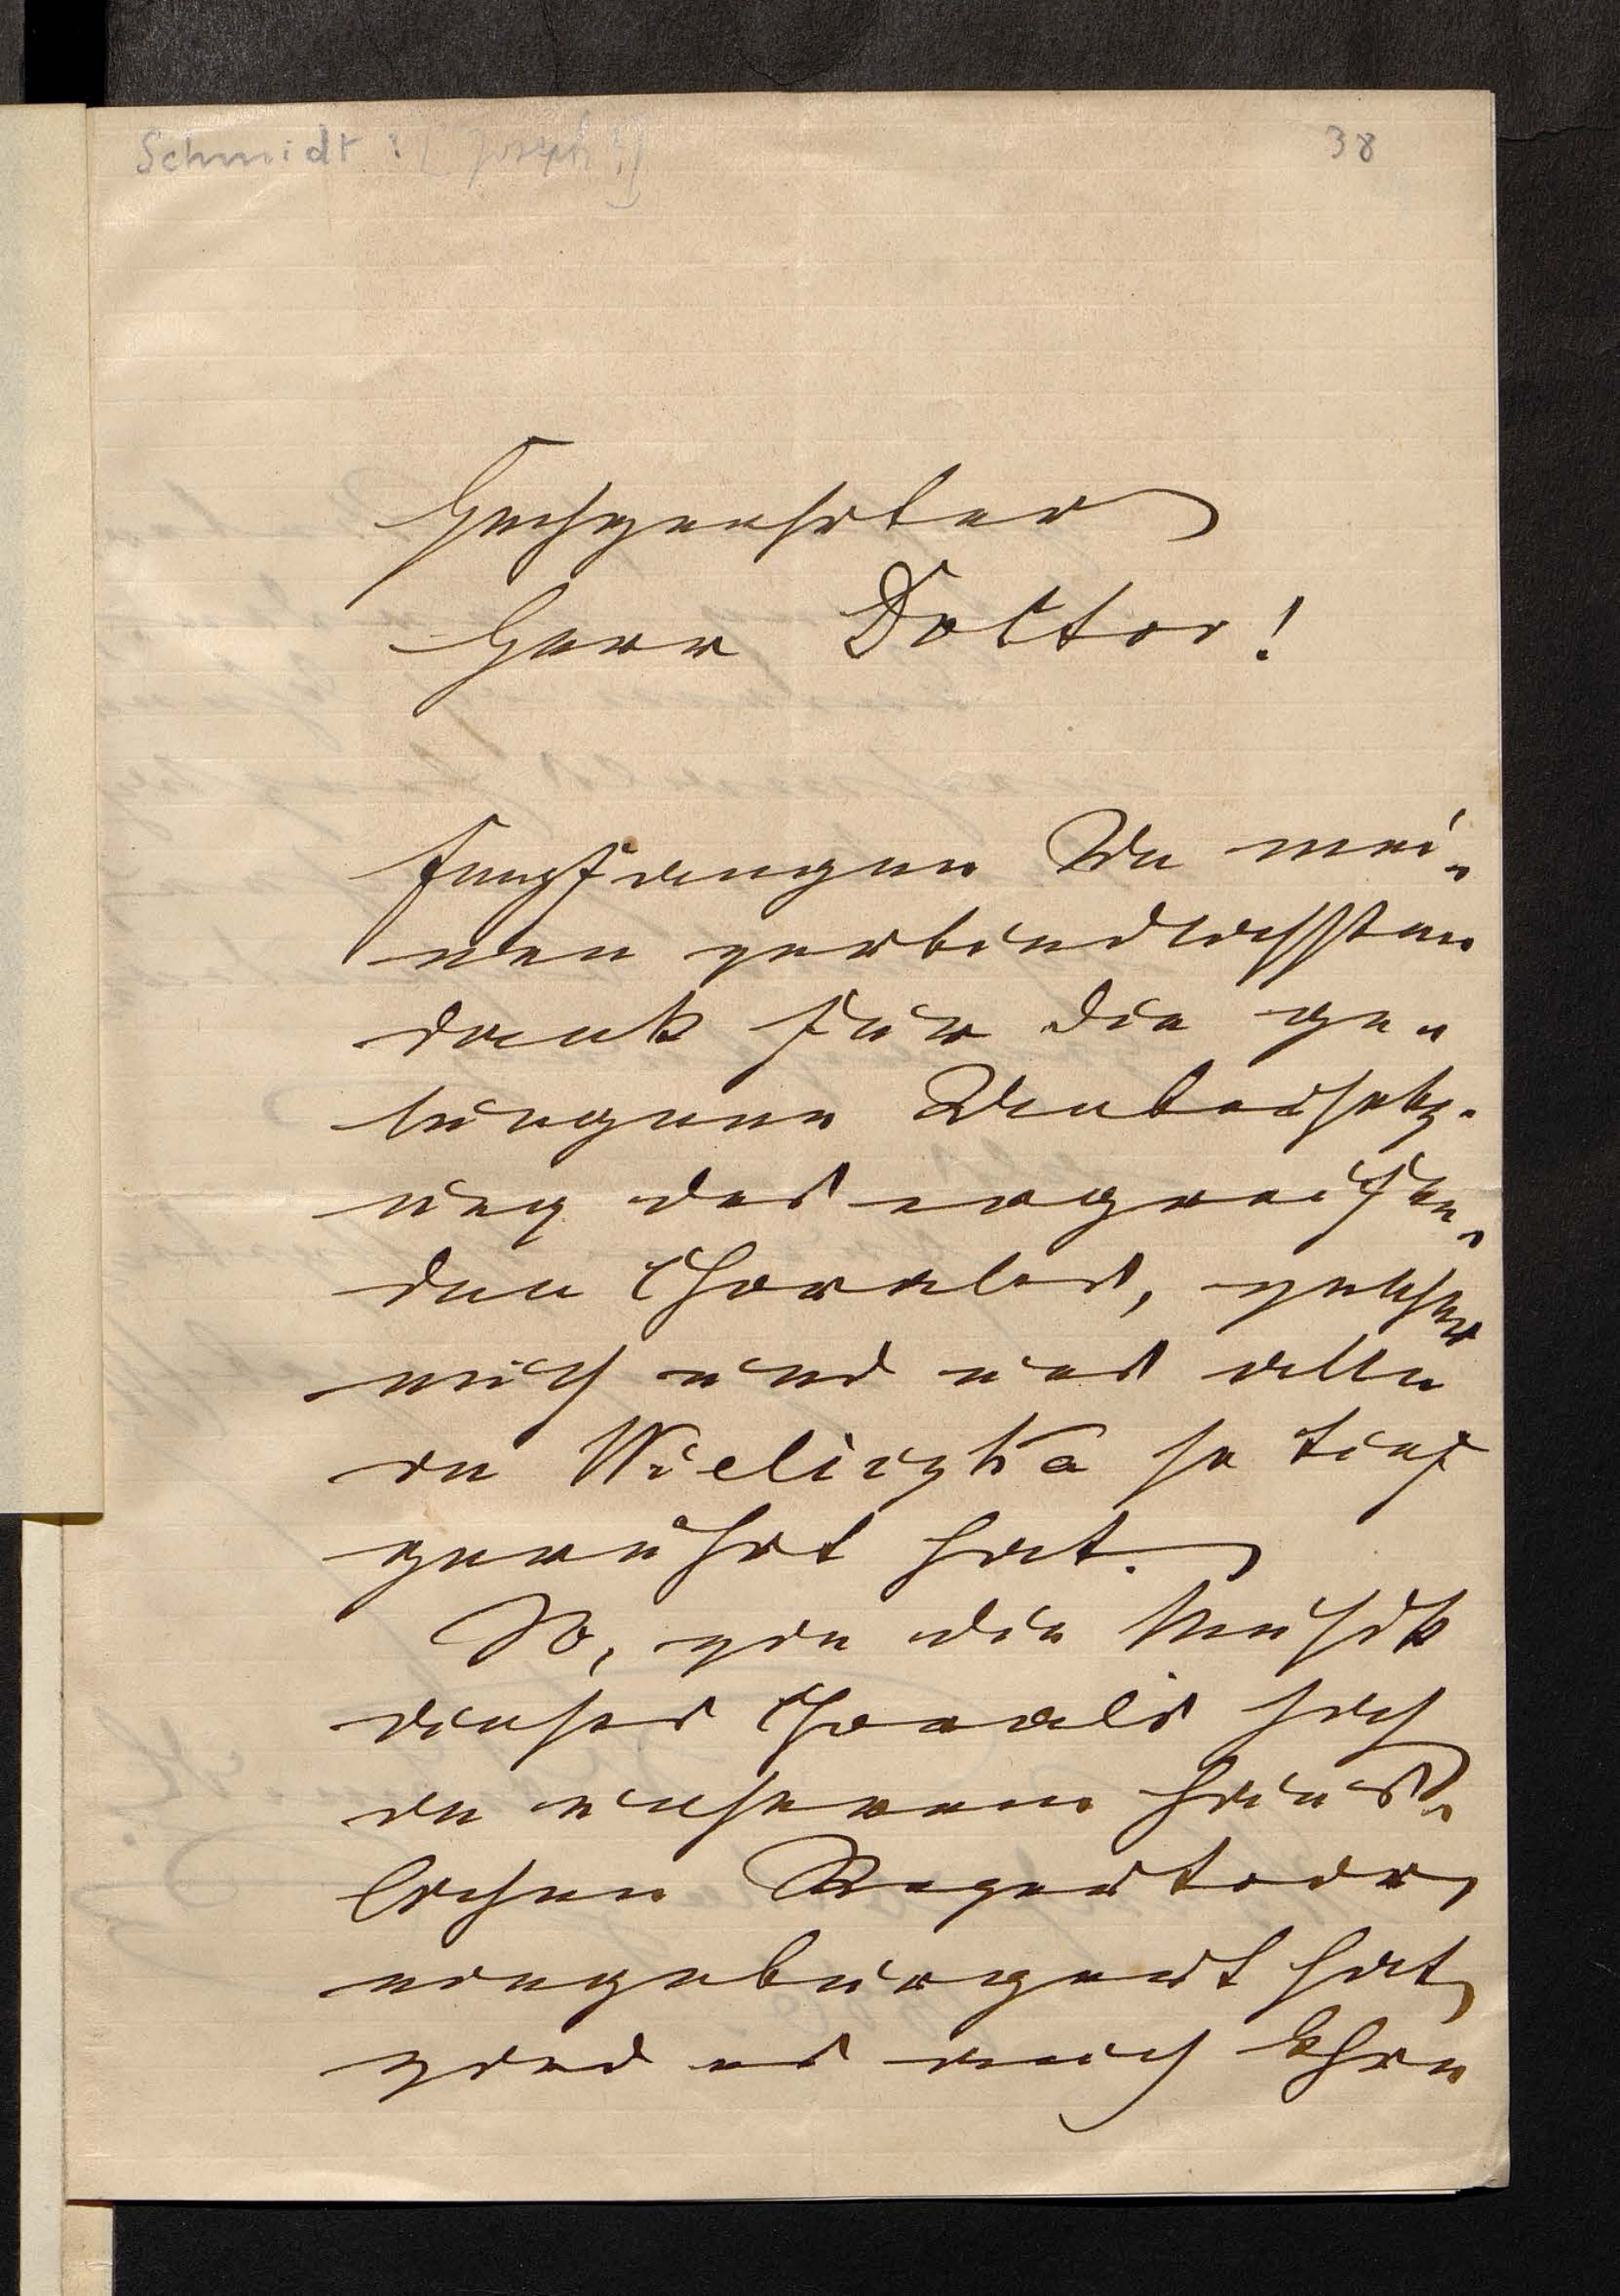 Schmidt ? [Joseph ?]
38
Hochgeehrter
Herr Doktor!
Empfangen Sie mei-
nen verbindlichsten
Dank für die ge-
lungene Uebersetz-
ung des ergreifen-
den Chorales, welcher
mich und uns alle
in Wieliczka so tief
gerührt hat.
So, wie die Musik
dieses Chorals sich
in unserem häus-
lichen Repertoir
eingebürgert hat,
wird es auch Ihre